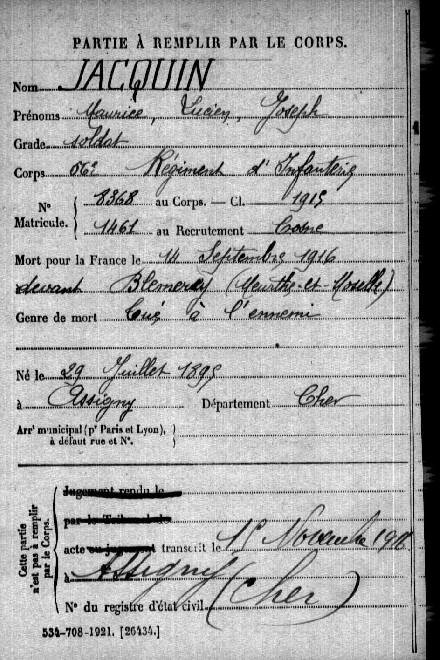 PARTIE À REMPLIR PAR LE CORPS.
Nom JACQUIN
Prénoms Maurice, Lucien, Joseph
Grade soldat
Corps 56e Régiment d'Infanterie
N° Matricule. 8368 au Corps. — Cl. 1915
1461 au Recrutement Cosne
Mort pour la France le 14 Septembre 1916
devant Blemerey (Meurthe-et-Moselle)
Genre de mort Tué à l'ennemi
Né le 29 Juillet 1895
à Assigny Département Cher
Arrt municipal (pr Paris et Lyon), à défaut rue et N°.
Cette partie n'est pas à remplir par le Corps.
Jugement rendu le
par le Tribunal de
acte ou jugement transcrit le Novembre
à Assigny (Cher)
N° du registre d'état civil
534-708-1921. [26434.]